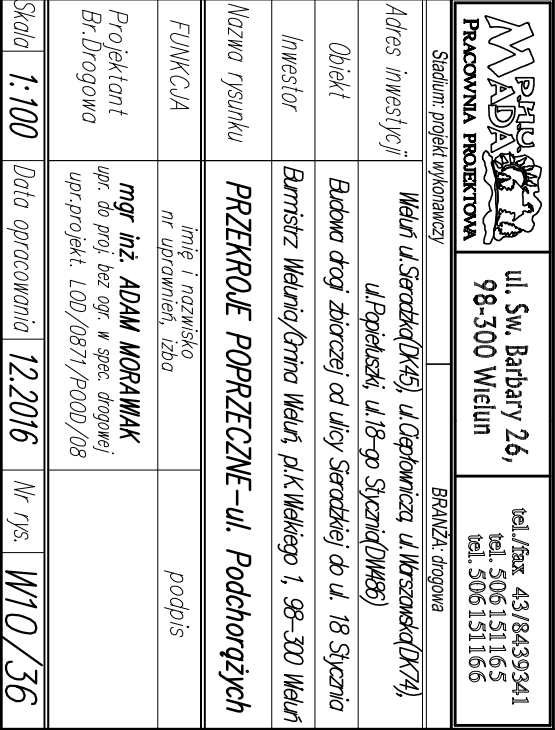 P.H.U.
MADA
PRACOWNIA PROJEKTOWA
ul. Sw. Barbary 26,
98-300 Wielun
tel./fax 43/8439341
tel. 506151165
tel. 506151166
Stadium: projekt wykonawczy
BRANŻA: drogowa
Adres inwestycji
Wieluń ul.Sieradzka(DK45), ul.Ciepłownicza, ul.Warszawska(DK74),
ul.Popiełuszki, ul.18-go Stycznia(DW486)
Obiekt
Budowa drogi zbiorczej od ulicy Sieradzkiej do ul. 18 Stycznia
Inwestor
Burmistrz Wielunia/Gmina Wieluń, pl.K.Wielkiego 1, 98-300 Wieluń
Nazwa rysunku
PRZEKROJE POPRZECZNE-ul. Podchorążych
FUNKCJA
imię i nazwisko
nr uprawnień, izba
podpis
Projektant
Br.Drogowa
mgr inż. ADAM MORAWIAK
upr. do proj. bez ogr. w spec. drogowej
upr.projekt. LOD/0871/POOD/08
Skala
1:100
Data opracowania
12.2016
Nr rys.
W10/36